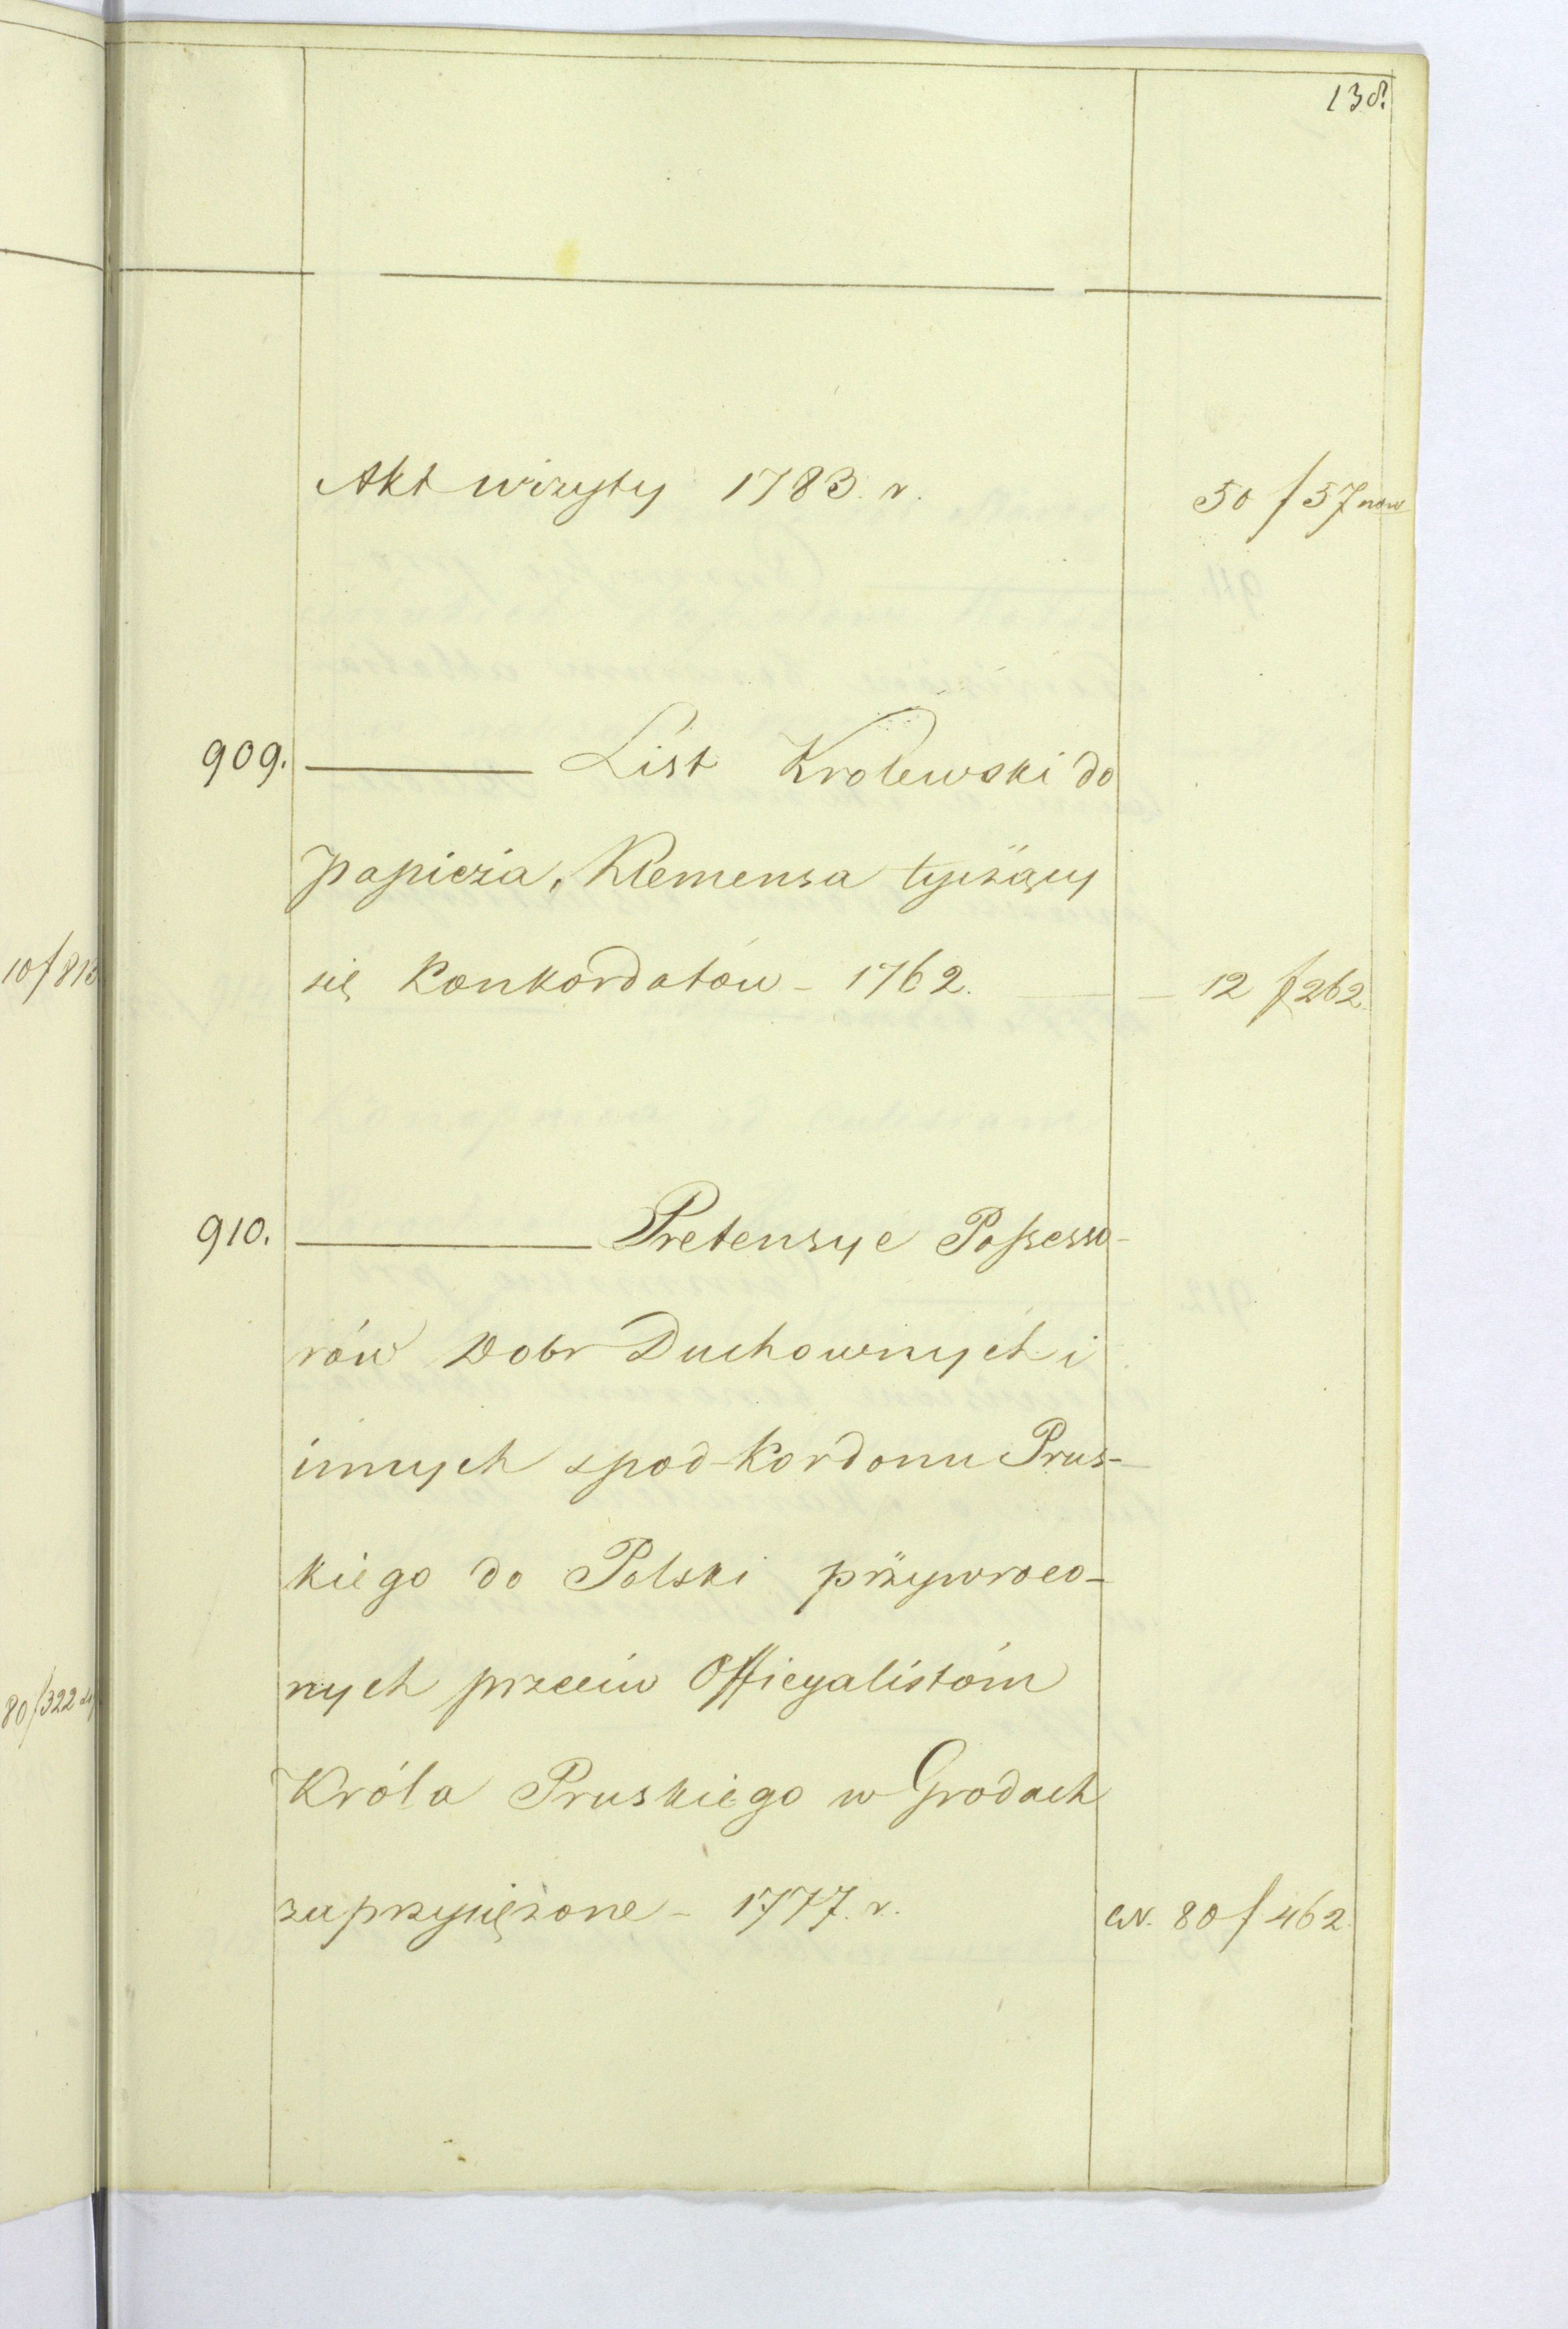 138.
Akt wizyty 1783. r. 50 f 57 now
909. List Krolewski do
papieża, Klemensa tyczący
się Konkordatów - 1762. 12 f 262.
10/813
910. Pretensye Possesso-
rów Dobr Duchownych i
innych spod Kordonu Prus-
kiego do Polski przywroco-
nych przeciw Officyalistóm
80/322
Króla Pruskiego w Grodach
zaprzysiężone - 1777. r. 80 f 462.